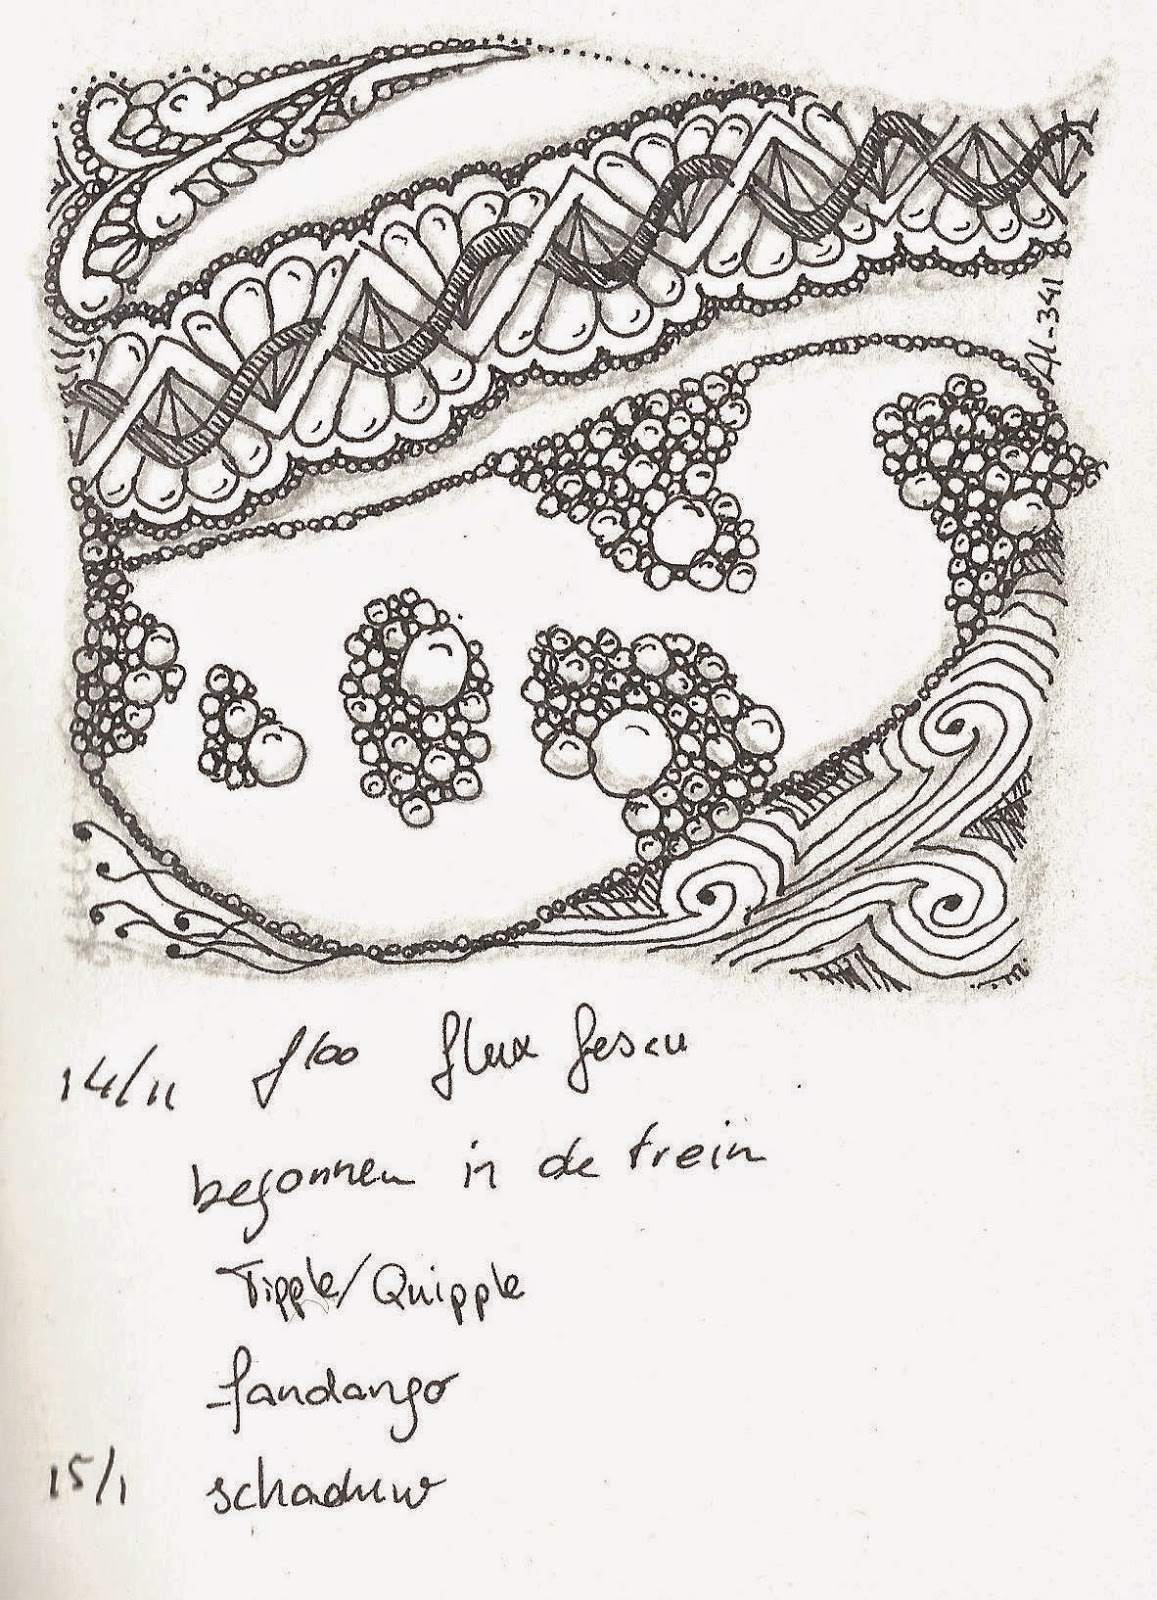 AL-341
14/11 floo flux fescu
begonnen in de trein
Tipple/Quipple
fandango
15/1 schaduw